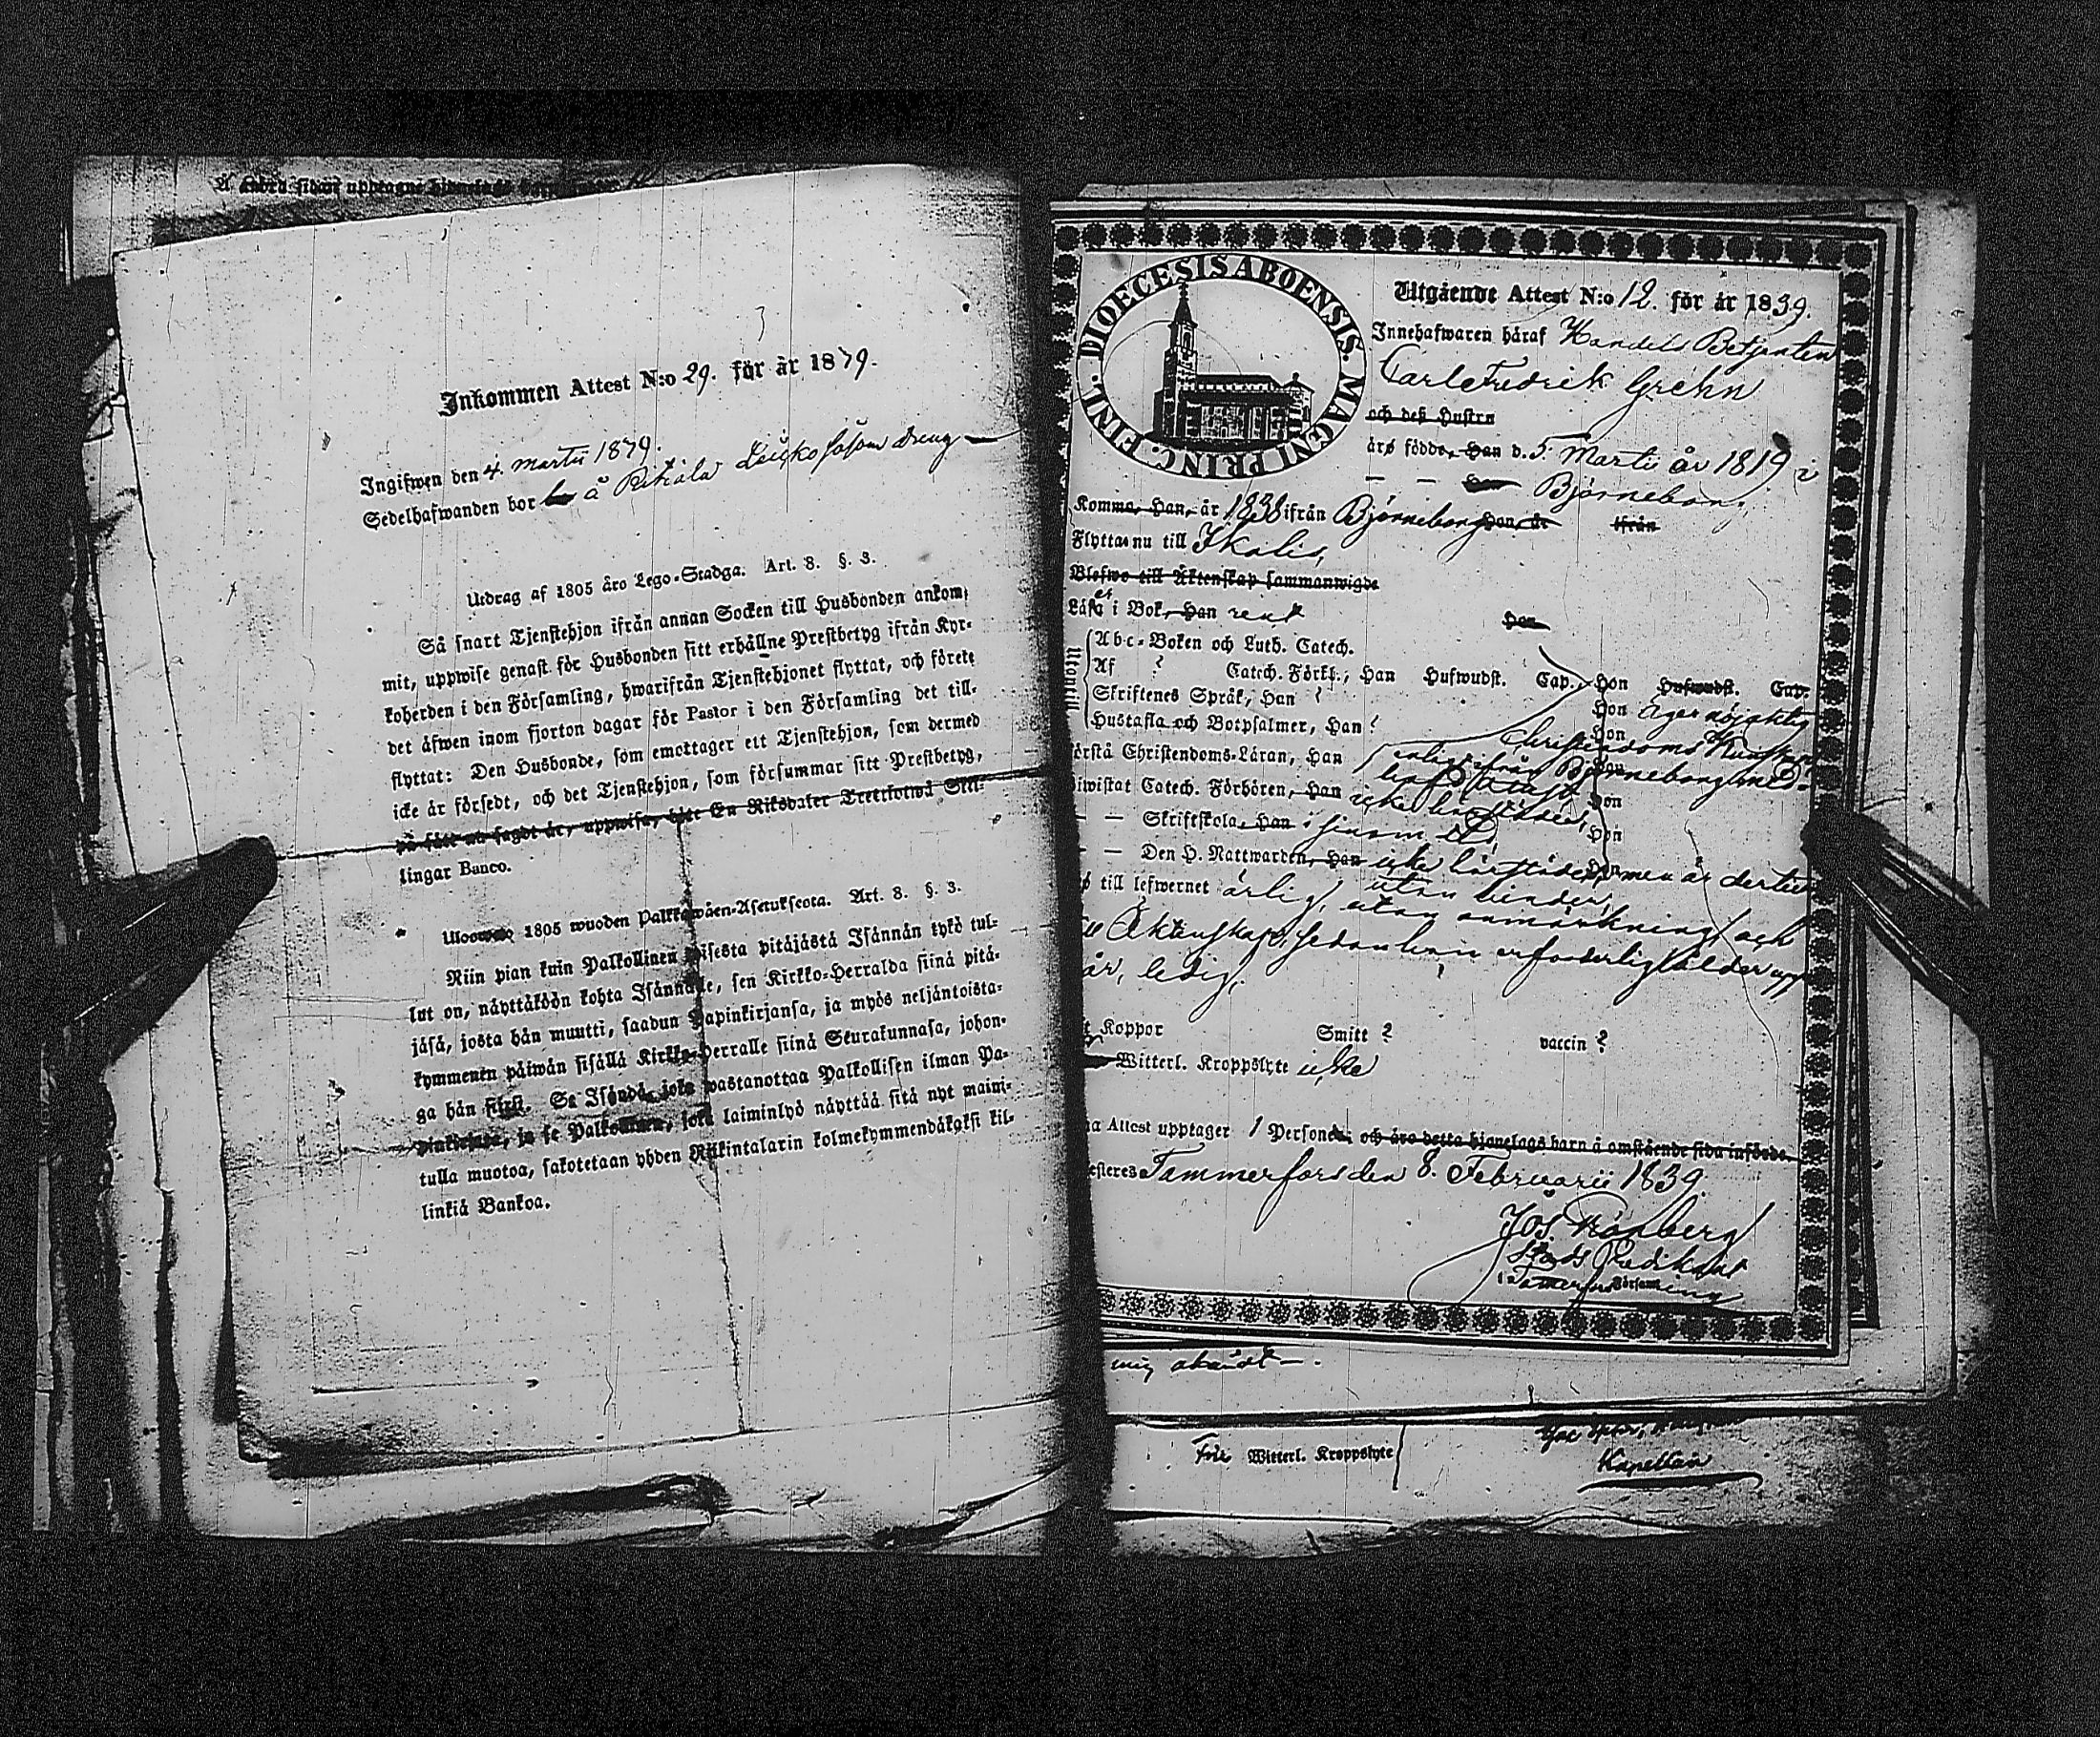 Å andra sidan upptagne hjonelags barn
Inkommen Attest N:o 29. för år 1879.
Ingifwen den 4. Martii 1879.
Sedelhafwanden bor å dreng
Utdrag af 1805 åro Lego-Stadga. Art. 8. §. 3.
Så snart Tjenstehjon ifrån annan Socken till Husbonden ankom-
mit, uppwise genast för Husbonden sitt erhållne Prestbetyg ifrån Kyr-
koherden i den Församling, hwarifrån Tjenstehjonet flyttat, och förete
det äfwen inom fjorton dagar för Pastor i den Församling det till-
flyttat: Den Husbonde, som emottager ett Tjenstehjon, som dermed
icke är försedt, och det Tjenstehjon, som försummar sitt Prestbetyg,
på sätt nu sagdt är, uppwisa, böte En Riksdaler Trettiotwå Skil-
lingar Banco.
Uloswato 1805 wuoden Palkkawäen-Asetuksesta. Art. 8. §. 3.
Niin pian kuin Palkollinen toisesta pitäjästä Isännän tykö tul-
lut on, näyttäköön kohta Isännälle, sen Kirkko-Herralda siinä pitä-
jäsä, josta hän muutti, saadun Papinkirjansa, ja myös neljäntoista-
kymmenen päiwän sisällä Kirkko-Herralle siinä Seurakunnasa, johon-
ga hän siirsi. Se Isändä, joka wastanottaa Palkollisen ilman Pa-
pinkirjata, ja se Palkollinen, joka laiminlyö näyttää sitä nyt maini-
tulla muotoa, sakotetaan yhden Riikintalarin kolmekymmendäkaksi kil-
linkiä Bankoa.
DIOECESIS ABOENSIS. MAGNI PRINC. FINL.
Utgående Attest N:o 12. för år 1839.
Innehafwaren häraf Handels Betjenten
Carl Fredrik Grehn
och deß Hustru
äro födde, Han d. 5 Martii år 1819 i
— — Hon Björneborg
Komma, Han, år 1838 ifrån Björneborg Hon, år ifrån
Flyttar nu till Ikalis,
Blefwo till Äktenskap sammanwigde
Läsa i Bok, Han rent Hon
Utontill
Abc-Boken och Luth. Catech.
Af ? Catech. Förkl., Han Hufwudst. Cap., Hon Hufwudst. Cap.
Skriftenes Språk, Han ? Hon äger nöjaktig
Hustafla och Botpsalmer, Han ? Hon Christendoms Kunskap
örstå Christendoms-Läran, Han enligt ifrån Björneborg med-
iwistat Catech. Förhören, Han icke härstädes, Hon
— — Skriftskola, Han Hon
— — Den H. Nattwarden, Han icke härstädes, men är dertill
till lefwernet ärlig, utan hinder,
utan anmärkning, och
Äktenskap, sedan han erforderlig ålder upp
år, ledig.
Koppor Smitt ? vaccin ?
Witterl. Kroppslyte icke
na Attest upptager 1 Personer och äro detta hjonelags barn å omstående sida införde.
esteres Tammerfors den 8. Februarii 1839.
Jos. Grönberg
Stads Predikant
i Tammerfors Församling
mig
Witterl. Kroppslyte
Kapellan